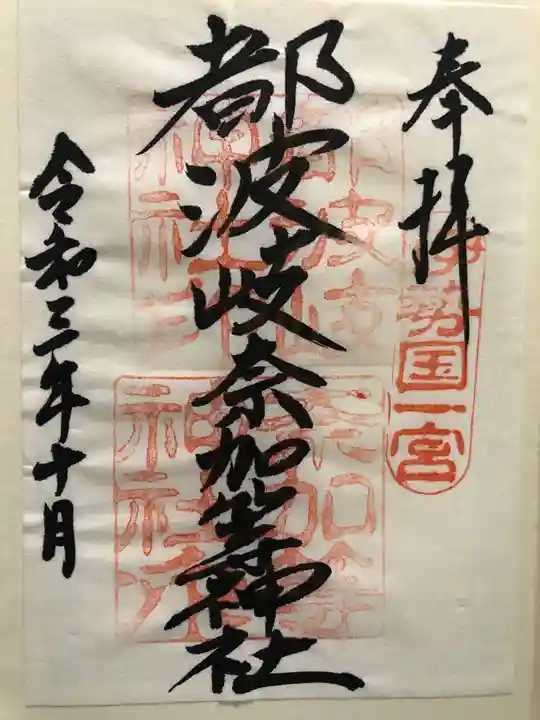 奉拝
伊勢国一宮
都波岐奈加等神社
令和三年十月